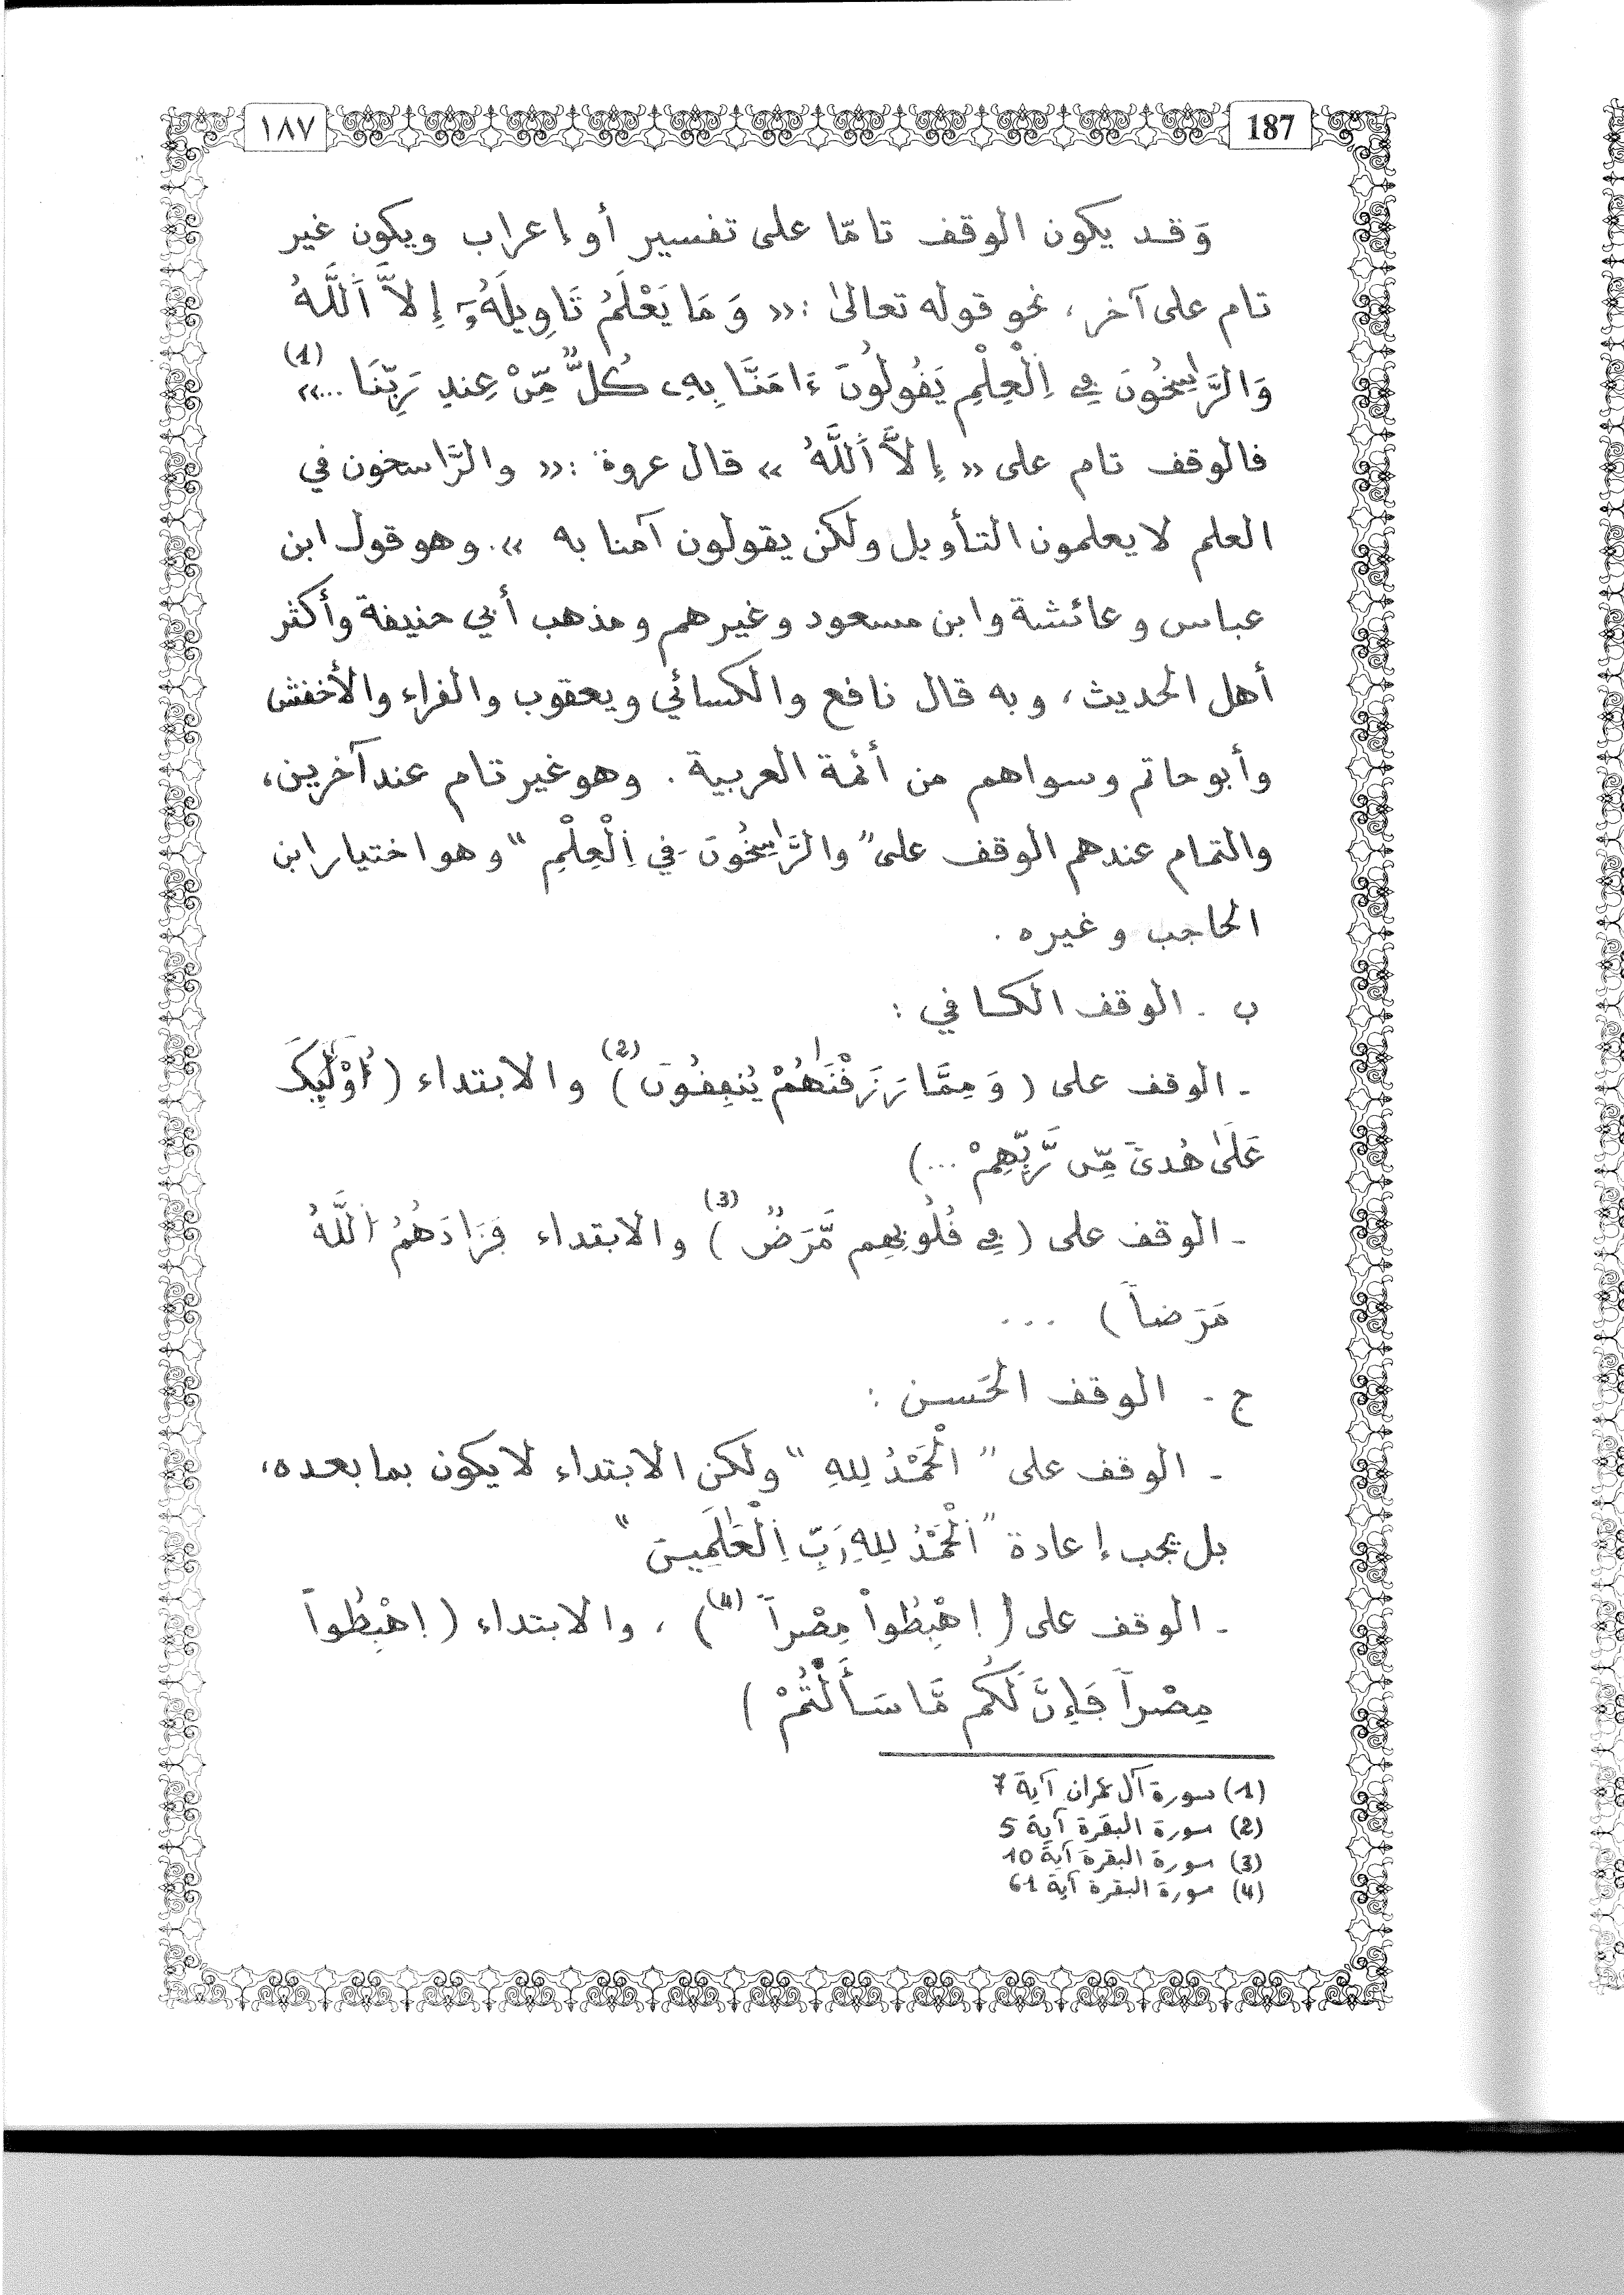 187 ١٨٧
وَقد يكون الوقف تامّا على تفسير أو إعراب ويكون غير
تام على آخر، نحو قوله تعالىٰ : «وَمَا يَعْلَمُ تَاوِيلَهُۥٓ إِلاَّ اَ۬للَّهُ
وَالرَّٰسِخُونَ فِے اِ۬لْعِلْمِ يَقُولُونَ ءَامَنَّا بِهِۦ كُلٌّ مِّنْ عِندِ رَبِّنَا ...» (1)
فالوقف تام على «إِلاَّ اَ۬للَّهُ» قال عروة : «والرَّاسخون في
العلم لا يعلمون التأويل ولكن يقولون آمنا به». وهو قول ابن
عباس وعائشة وابن مسعود وغيرهم ومذهب أبي حنيفة وأكثر
أهل الحديث، وبه قال نافع والكسائي ويعقوب والفراء والأخفش
وأبو حاتم وسواهم من أئمة العربية . وهو غير تام عند آخرين،
والتمام عندهم الوقف على "والرَّٰسِخُونَ فِي اِ۬لْعِلْمِ" وهو اختيار ابن
الحاجب وغيره .
ب - الوقف الكافي :
- الوقف على (وَمِمَّا رَزَقْنَٰهُمْ يُنفِقُونَ) (2) والابتداء (أُوْلَٰٓئِكَ
عَلَىٰ هُدىً مِّن رَّبِّهِمْ ...)
- الوقف على (فِے قُلُوبِهِم مَّرَضٌ) (3) والابتداء فَزَادَهُمُ اُ۬للَّهُ
مَرَضاً) ...
ج - الوقف الحَسن :
- الوقف على "الْحَمْدُ لِلهِ" ولكن الابتداء لا يكون بما بعده،
بل يجب إعادة "اَ۬لْحَمْدُ لِلهِ رَبِّ اِ۬لْعَٰلَمِينَ"
- الوقف على (اِهْبِطُواْ مِصْراً (4)) ، والابتداء (اِهْبِطُواْ
مِصْراً فَإِنَّ لَكُم مَّا سَأَلْتُمْ)
(1) سورة آل عمران آية 7
(2) سورة البقرة آية 5
(3) سورة البقرة آية 10
(4) سورة البقرة آية 61